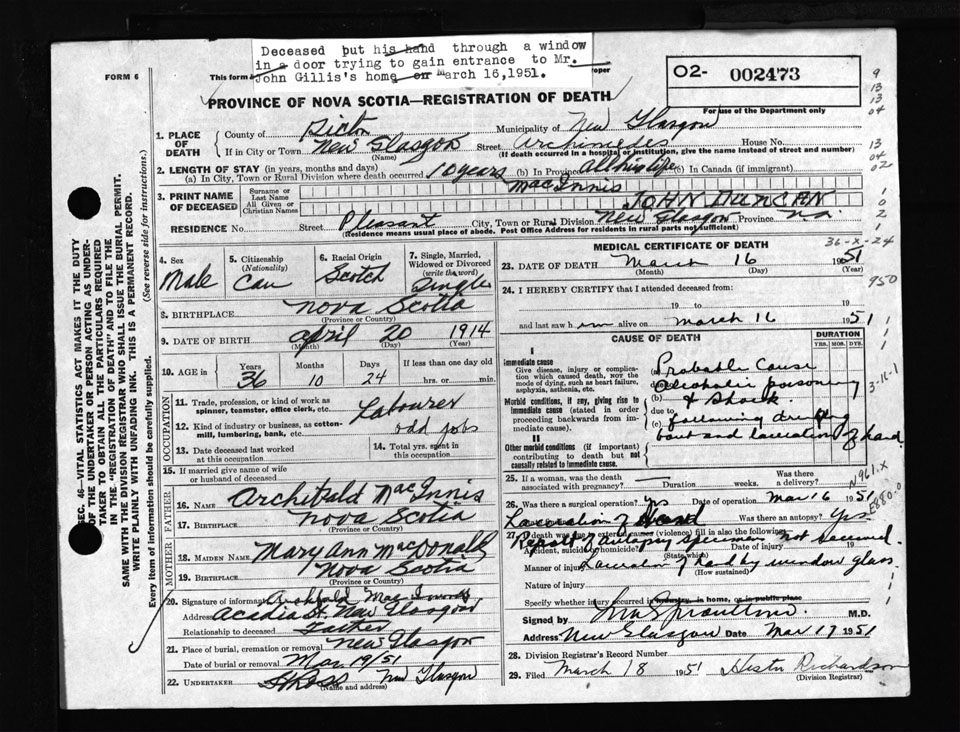 Deceased put his hand through a window
in a door trying to gain entrance to Mr.
John Gillis's home on March 16, 1951.
FORM 6
This form
proper
O2- 002473
For use of the Department only
PROVINCE OF NOVA SCOTIA—REGISTRATION OF DEATH
1. PLACE OF DEATH
County of Pictou Municipality of New Glasgow
If in City or Town New Glasgow Street Archimedes House No.
(Name) (If death occurred in a hospital or institution, give the name instead of street and number)
2. LENGTH OF STAY (in years, months and days)
(a) In City, Town or Rural Division where death occurred 10 years (b) In Province All his life (c) In Canada (if immigrant)
3. PRINT NAME OF DECEASED
Surname or Last Name MacInnis
All Given or Christian Names JOHN DUNCAN
RESIDENCE No. Street Pleasant City, Town or Rural Division New Glasgow Province N.S.
(Residence means usual place of abode. Post Office Address for residents in rural parts not sufficient)
4. Sex Male
5. Citizenship (Nationality) Can
6. Racial Origin Scotch
7. Single, Married, Widowed or Divorced (write the word) Single
8. BIRTHPLACE Nova Scotia
(Province or Country)
9. DATE OF BIRTH April 20 1914
(Month) (Day) (Year)
10. AGE in Years 36 Months 10 Days 24 If less than one day old hrs. or min.
OCCUPATION
11. Trade, profession, or kind of work as spinner, teamster, office clerk, etc. Labourer
12. Kind of industry or business, as cotton-mill, lumbering, bank, etc. odd jobs
13. Date deceased last worked at this occupation
14. Total yrs. spent in this occupation
15. If married give name of wife or husband of deceased
FATHER
16. Name Archibald MacInnis
17. Birthplace Nova Scotia
(Province or Country)
MOTHER
18. Maiden Name Mary Ann MacDonald
19. Birthplace Nova Scotia
(Province or Country)
20. Signature of informant Archibald MacInnis
Address Acadia St. New Glasgow
Relationship to deceased Father
21. Place of burial, cremation or removal New Glasgow
Date of burial or removal Mar 19/51
22. UNDERTAKER New Glasgow
(Name and address)
MEDICAL CERTIFICATE OF DEATH
36-X-24
23. DATE OF DEATH March 16 1951
(Month) (Day) (Year)
950
24. I HEREBY CERTIFY that I attended deceased from:
19 to 19
and last saw him alive on March 16 1951
CAUSE OF DEATH
DURATION
YRS. MOS. DYS.
I
Immediate cause
Give disease, injury or complication which caused death, NOT the mode of dying, such as heart failure, asphyxia, asthenia, etc.
(a) Probable Cause
due to alcoholic poisoning
Morbid conditions, if any, giving rise to immediate cause (stated in order proceeding backwards from immediate cause).
(b) & Shock
due to
(c) following drinking
bout and laceration of hand
II
Other morbid conditions (if important) contributing to death but not causally related to immediate cause.
25. If a woman, was the death associated with pregnancy? Duration weeks. Was there a delivery?
N961.X
E880-0
26. Was there a surgical operation? Yes Date of operation Mar 16 1951
Laceration of Hand Was there an autopsy? Yes
27. If death was due to external causes (violence) fill in also the following:
Report of autopsy specimen not received.
Accident, suicide or homicide? Date of injury 19
(State which)
Manner of injury Laceration of hand by window glass
(How sustained)
Nature of injury
Specify whether injury occurred in industry, in home, or in public place
Signed by M.D.
Address New Glasgow Date Mar 17 1951
28. Division Registrar's Record Number
29. Filed March 18 1951 Hester Richardson
(Division Registrar)
SEC. 46—VITAL STATISTICS ACT MAKES IT THE DUTY
OF THE UNDERTAKER OR PERSON ACTING AS UNDERTAKER TO OBTAIN ALL THE PARTICULARS REQUIRED
IN THE "REGISTRATION OF DEATH" AND TO FILE THE
SAME WITH THE DIVISION REGISTRAR WHO SHALL ISSUE THE BURIAL PERMIT.
WRITE PLAINLY WITH UNFADING INK. THIS IS A PERMANENT RECORD.
Every item of information should be carefully supplied. (See reverse side for instructions.)